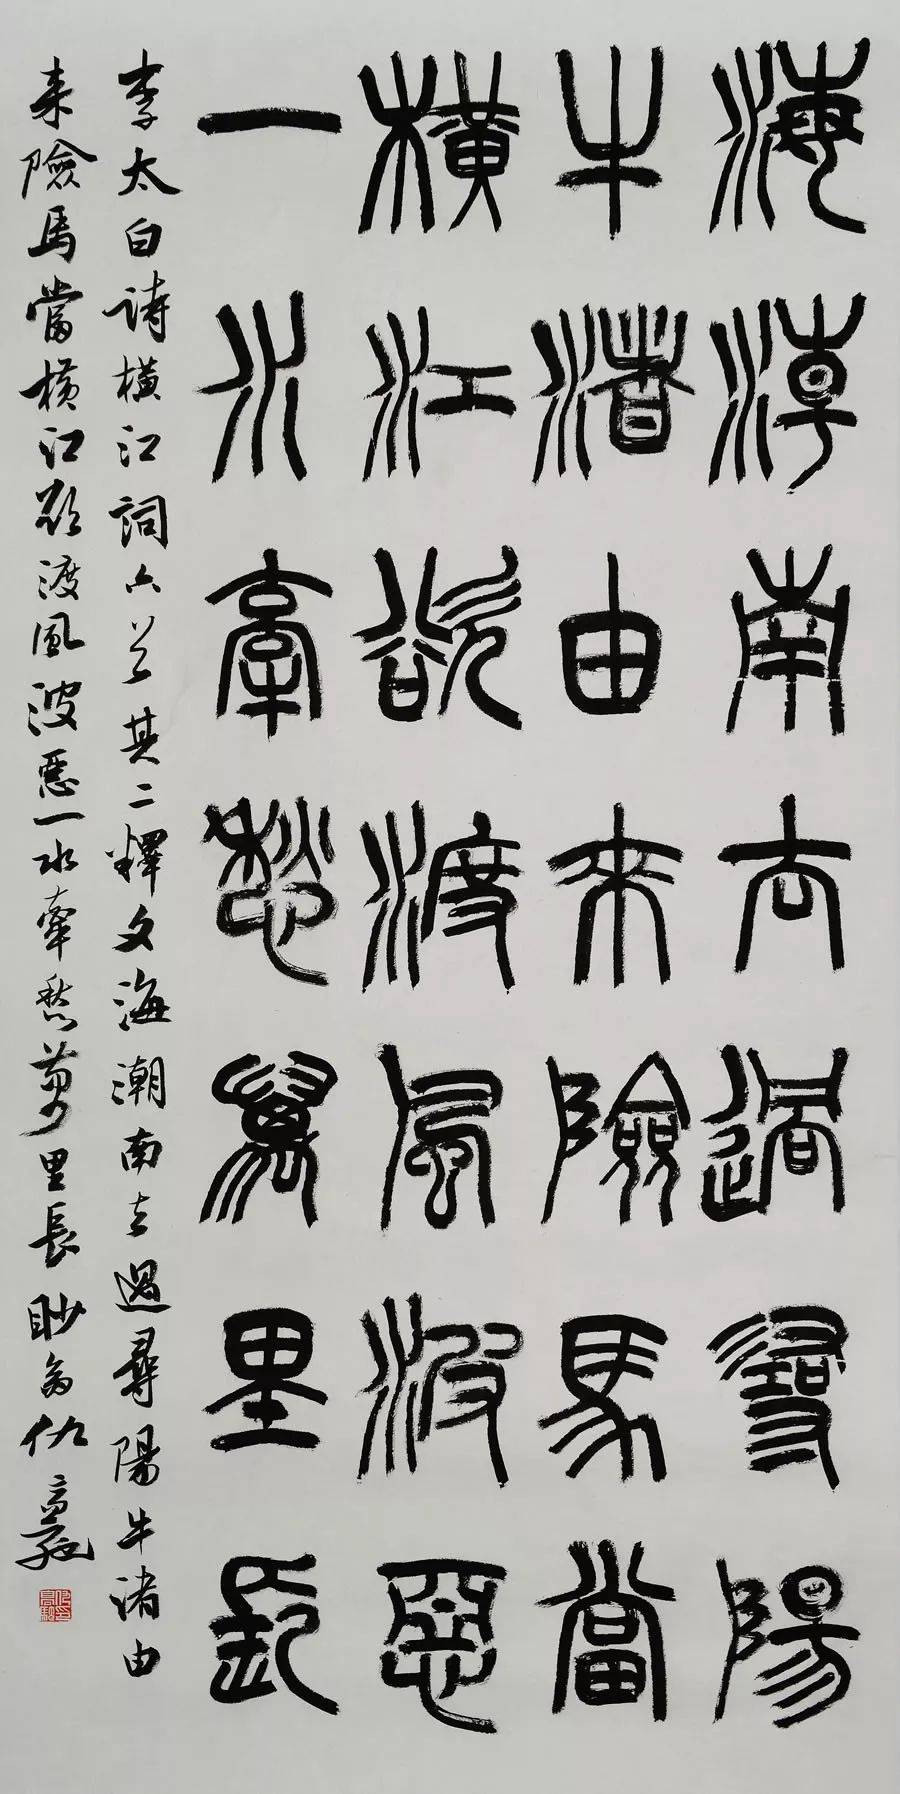 海潮南去過尋陽
牛渚由來險馬當
橫江欲渡風波惡
一水牽愁萬里長
李太白詩橫江詞六首其二釋文海潮南去過尋陽牛渚由
来險馬當橫江欲渡風波惡一水牽愁萬里長眇翁仇高馳